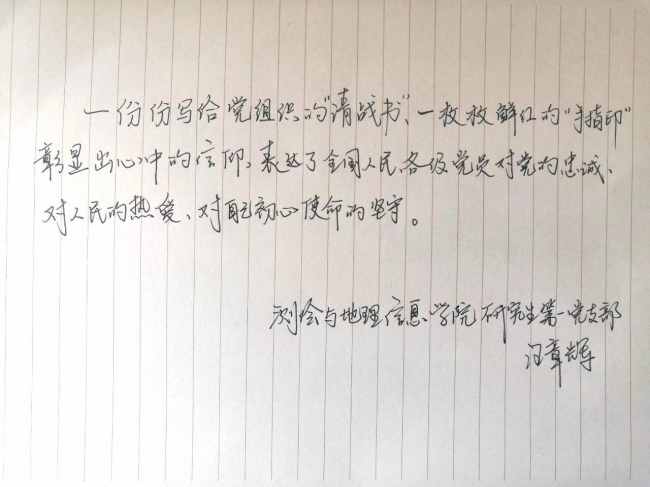 一份份写给党组织的“请战书”、一枚枚鲜红的“手指印”
彰显出心中的信仰，表达了全国人民各级党员对党的忠诚、
对人民的热爱、对自己初心使命的坚守。
测绘与地理信息学院研究生第一党支部
汪章辉